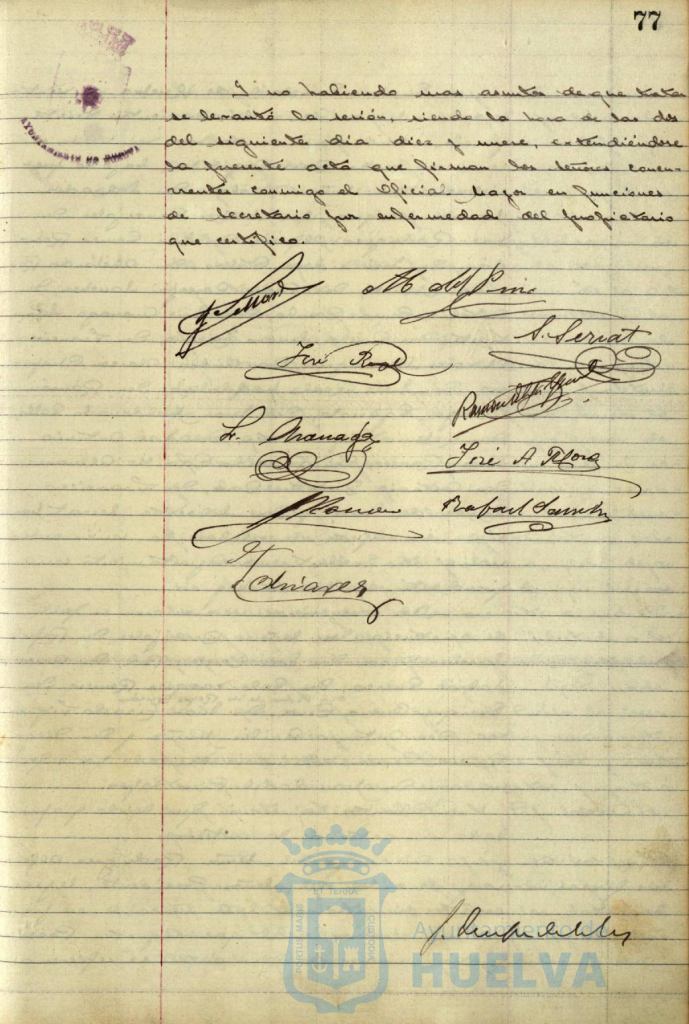 77
AYUNTAMIENTO DE HUELVA
Y no habiendo mas asuntos de que tratar
se levantó la sesión, siendo la hora de las dos
del siguiente dia diez y nueve, extendiéndose
la presente acta que firman los señores concu-
rrentes conmigo el Oficial Mayor en funciones
de Secretario por enfermedad del propietario
que certifico.
M. del Pino
S. Serrat
José
Ramón
José A. Mora
Rafael Sanchez
PORTUS MARIS ET TERRAE CUSTODIA
Ayuntamiento de
HUELVA